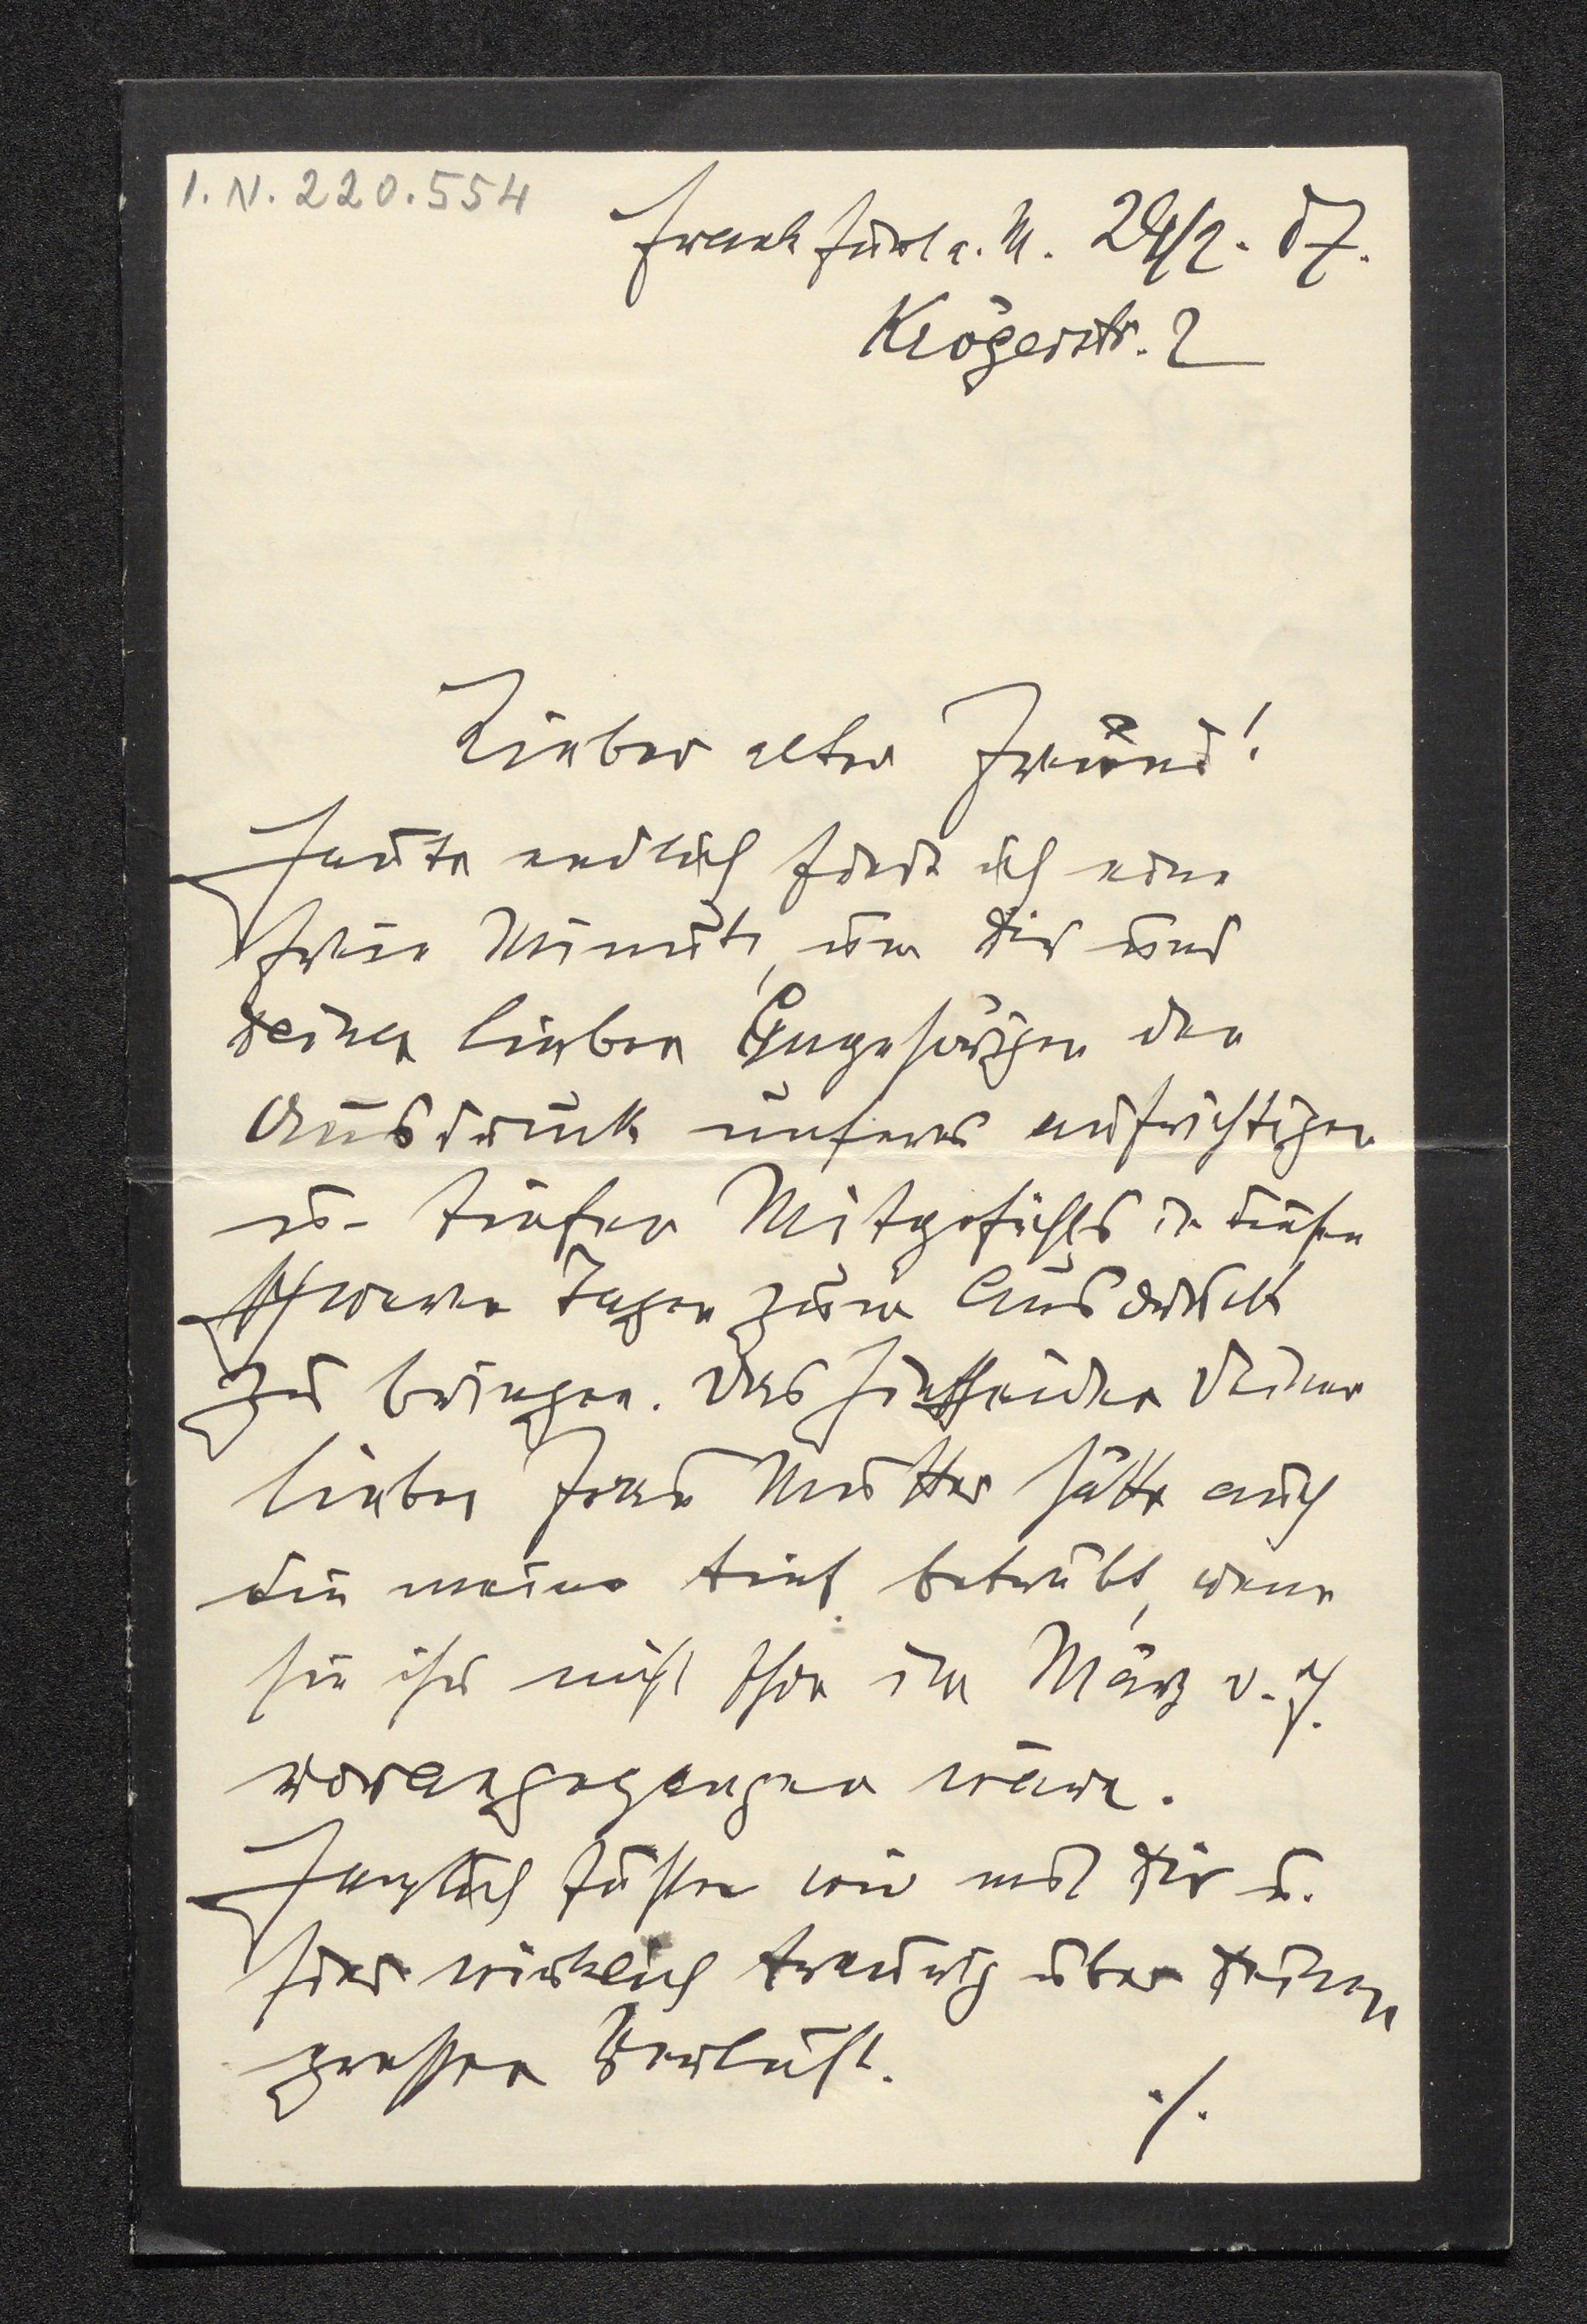 I. N. 220.554
Frankfurt a. M. 24/2. 07.
Krögerstr. 2
Lieber alter Freund!
Heute endlich finde ich eine
freie Minute, um Dir und
Deinen lieben Angehörigen den
Ausdruck unseres aufrichtigen
u. tiefen Mitgefühls in diesen
schweren Tagen zum Ausdruck
zu bringen. Das Hinscheiden Deiner
lieben Frau Mutter hätte auch
die meine tief betrübt, wenn
sie ihr nicht schon im März v. J.
vorangegangen wäre.
Herzlich fühlen wir mit Dir u.
sind wirklich traurig über Deinen
grossen Verlust.
./.